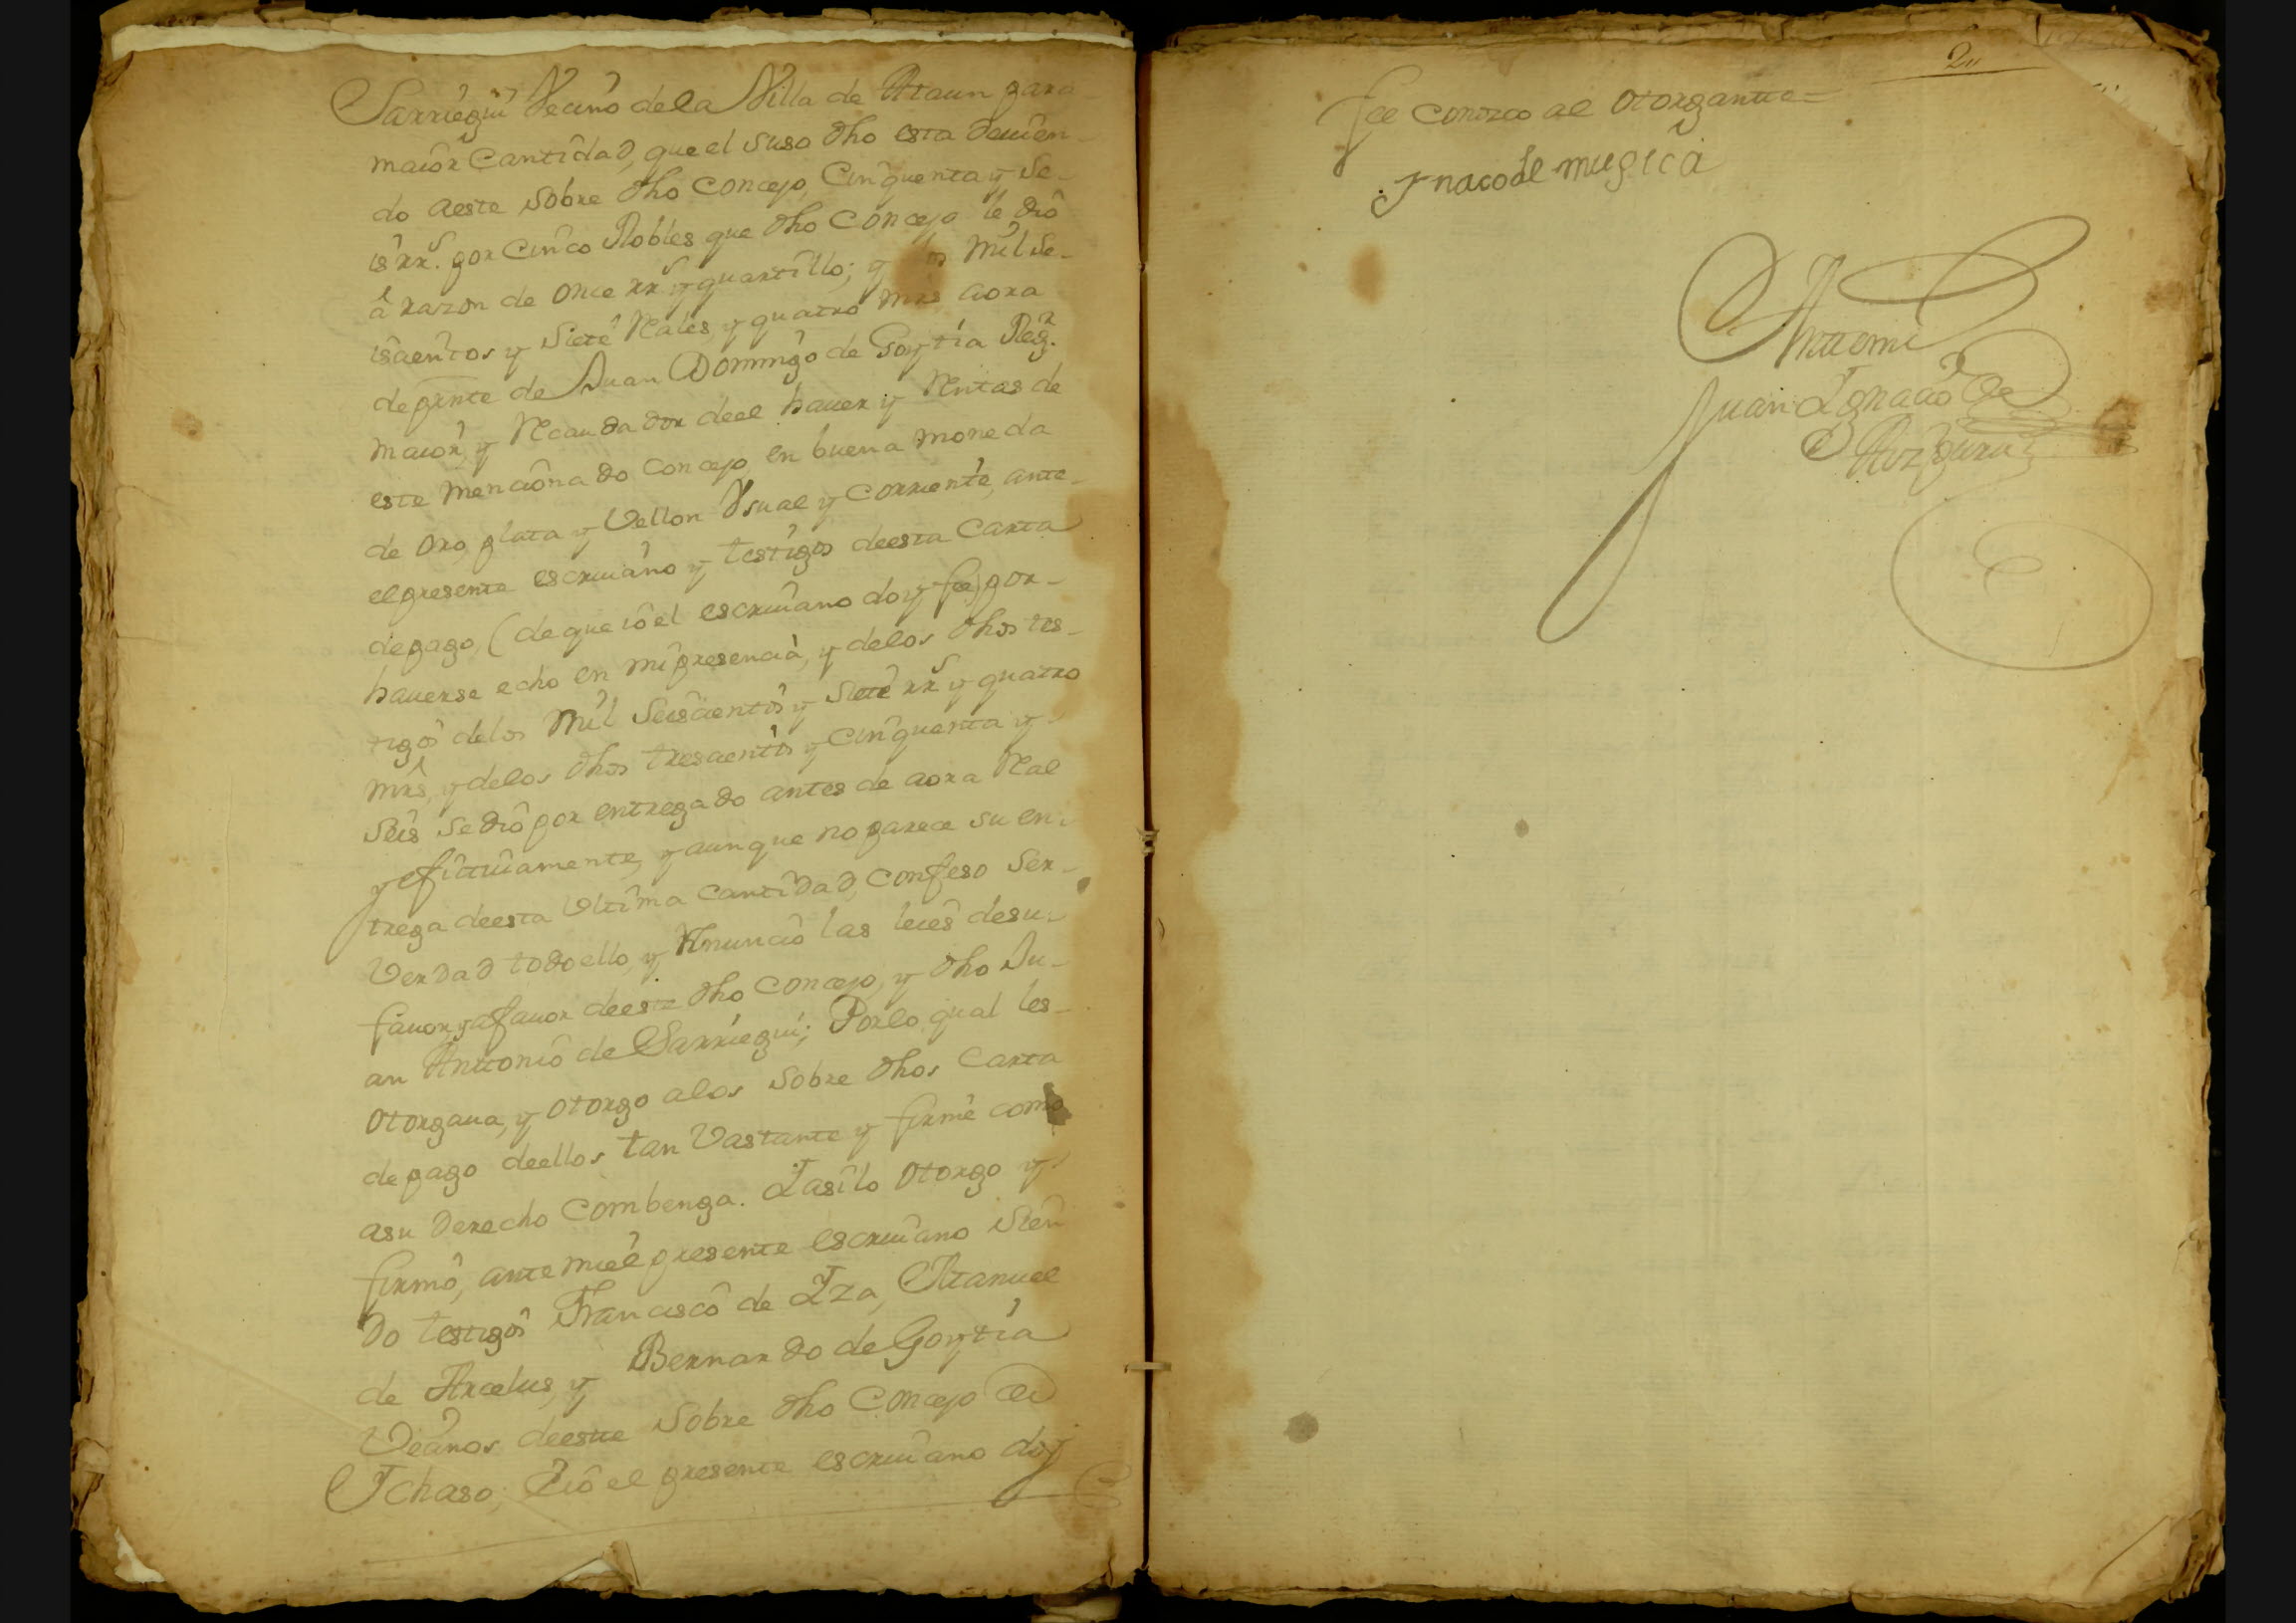 Sarriegui Vecino dela Villa de Ataun para
maior Cantidad, que el suso dho esta deuien-
do aeste sobre dho Concejo, Cinquenta y se-
is rrs. por Cinco Robles que dho Concejo le dio
â razon de once rrs y quartillo; y los mil se-
iscientos y siete Rales, y quatro mrs aora
de prnte de Juan Domingo de Goytia Regr.
maior, y Recaudador deel hauer y Rentas de
este mencionado Concejo, en buena moneda
de Oro, plata y Vellon Vsual y Corriente, ante-
el presente escriuano y testigos deesta Carta
depago, (de que io el escriuano doy fee) por-
hauerse echo en mi presencia, y delos dhos tes-
tigos delos Mil Seiscientos y siete rrs y quatro
mrs, y delos dhos trescientos y Cinquenta y
Seis se dio por entregado antes de aora Real
y efittiuamente, y aunque no parece su en-
trega deesta Vltima Cantidad, Confeso Ser-
Verdad todo ello, y Renuncio las leies desu-
fauor, y afauor deeste dho Concejo, y dho Ju-
an Anttonio de Sarriegui; Porlo qual les-
Otorgaua, y Otorgo alos sobre dhos Carta
de pago deellos tan Vastante y firme como
asu derecho Combenga. Iasilo Otorgo y
firmô, ante miel presente escriuano sien
do testigos Francisco de Iza, Manuel
de Arcelus, y Bernardo de Goytia
Vecinos deeste sobre dho Concejo de
Ichaso, Eio el presente escriuano doy
2
fee conozco al Otorgantte=
Ynacio de mugica
Anttemi
Juan Ignacio de
Aozpuru